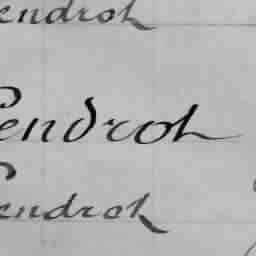 endrok
Pendrok
Pendrok